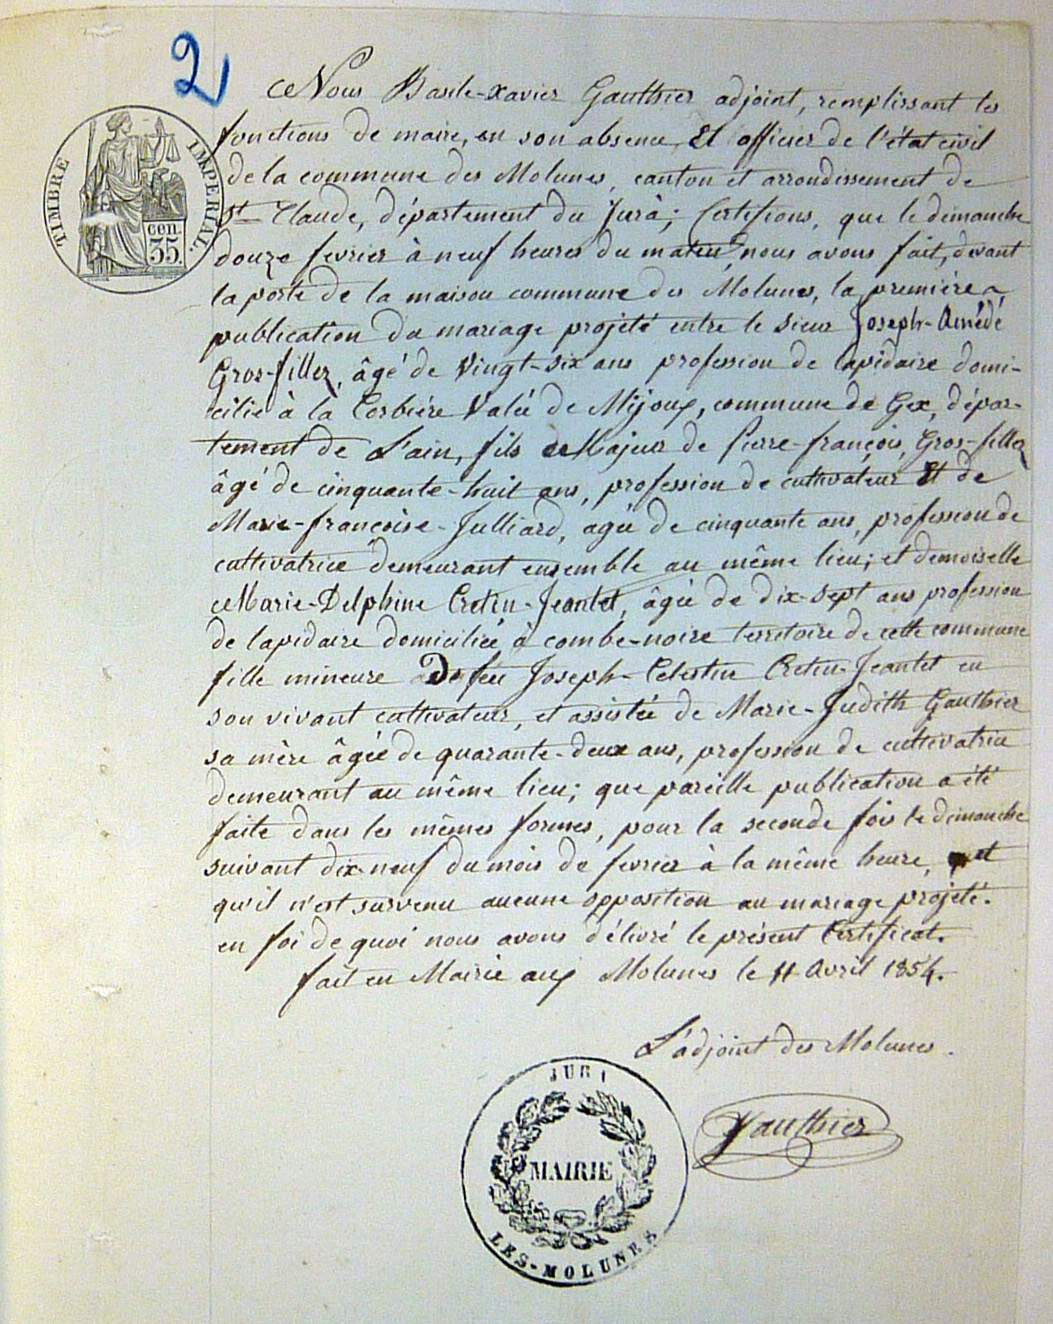 2
TIMBRE IMPERIAL.
cen.
35.
Nous Basile-Xavier Gauthier adjoint, remplissant les
fonctions de maire, en son absence, Et officier de l'état civil
de la commune des Molunes, canton et arrondissement de
St Claude, département du Jura; Certifions, que le dimanche
douze fevrier à neuf heures du matin, nous avons fait, devant
la porte de la maison commune des Molunes, la première
publication du mariage projeté entre le sieur Joseph-Amédé
Gros-fillez, âgé de Vingt-six ans profession de lapidaire domi-
cilié à la Corbière Valée de Mijoux, commune de Gex, dépar-
tement de L'ain, fils Majeur de Pierre-françois, Gros-fillez
âgé de cinquante-huit ans, profession de cultivateur Et de
Marie-françoise-Julliard, agée de cinquante ans, profession de
cultivatrice demeurant ensemble au même lieu; et demoiselle
Marie-Delphine Cretin-Jeantet, âgée de dix-sept ans profession
de lapidaire domiciliée à combe-noire territoire de cette commune
fille mineure De feu Joseph-Celestin Cretin-Jeantet en
son vivant cultivateur, et assistée de Marie-Judith Gauthier
sa mère âgée de quarante-deux ans, profession de cultivatrice
demeurant au même lieu; que pareille publication a été
faite dans les mêmes formes, pour la seconde fois le dimanche
suivant dix-neuf du mois de fevrier à la même heure, et
qu'il n'est survenu aucune opposition au mariage projeté.
en foi de quoi nous avons délivré le présent Certificat.
fait en Mairie aux Molunes le 11 Avril 1854.
L'adjoint des Molunes.
Gauthier
JURA
MAIRIE
LES-MOLUNES